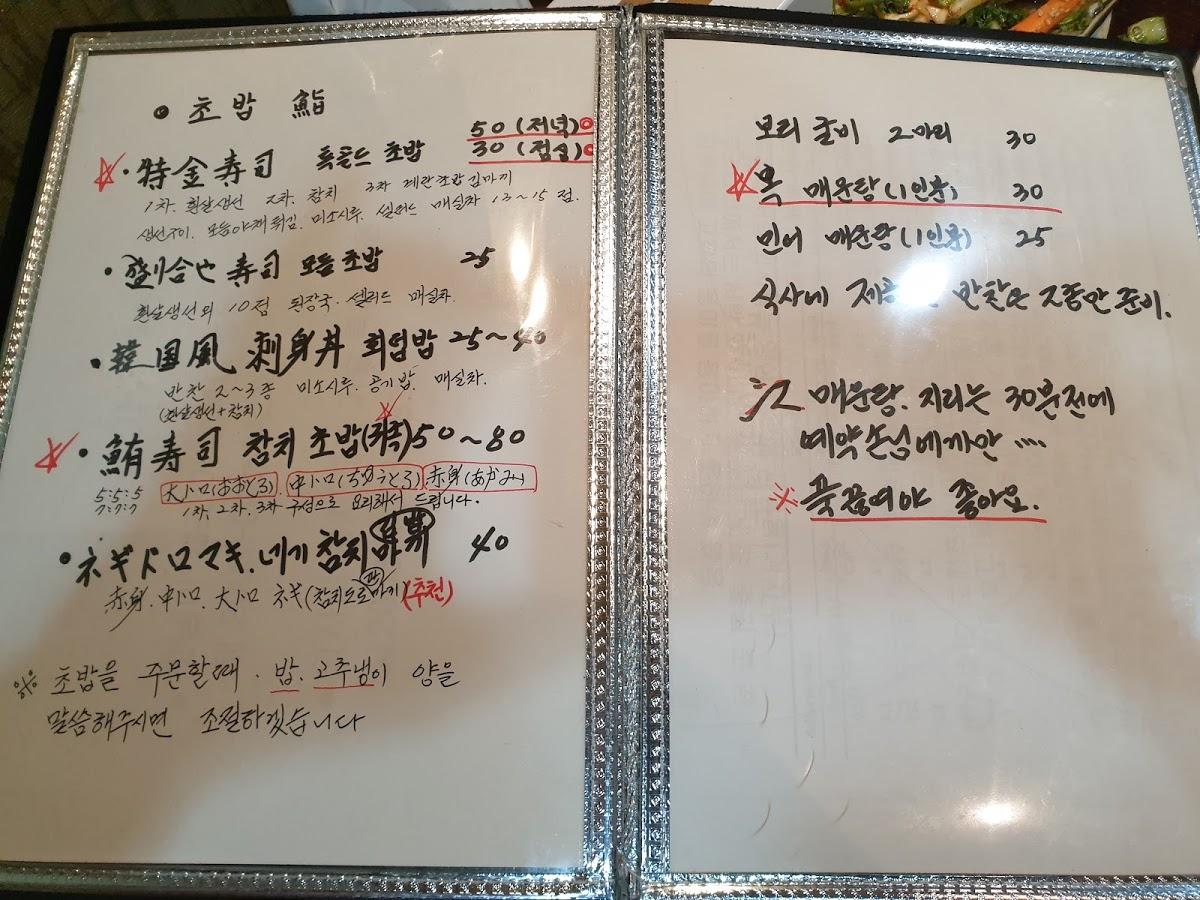 초밥 鮨
50 (저녁)
30 (점심)
特金寿司 특골드 초밥
1차. 흰살생선 2차. 참치 3차 계란초밥 김마끼
생선구이. 모듬야채튀김. 미소시루. 샐러드 매실차 13~15 점.
盛り合せ 寿司 모듬 초밥 25
흰살생선외 10점 된장국. 샐러드 매실차.
韓国風 刺身丼 회덮밥 25~40
반찬 2~3종 미소시루. 공기밥. 매실차.
(흰살생선+참치)
鮪寿司 참치 초밥 50~80
5:5:5 大トロ(おおとろ). 中トロ(ちゅうとろ) 赤身(あかみ)
7:7:7 1차. 2차. 3차 구성으로 요리해서 드립니다.
ネギトロマキ. 네기 참치 40
赤身. 中トロ. 大トロ ネギ (추천)
※ 초밥을 주문할때. 밥. 고추냉이 양을
말씀해주시면 조절하겠습니다
보리 굴비 2마리 30
매운탕(1인분) 30
민어 매운탕(1인분) 25
식사에 반찬은 준비.
매운탕. 지리는 30분전에
예약손님에게만 ....
※ 푹끓여야 좋아요.